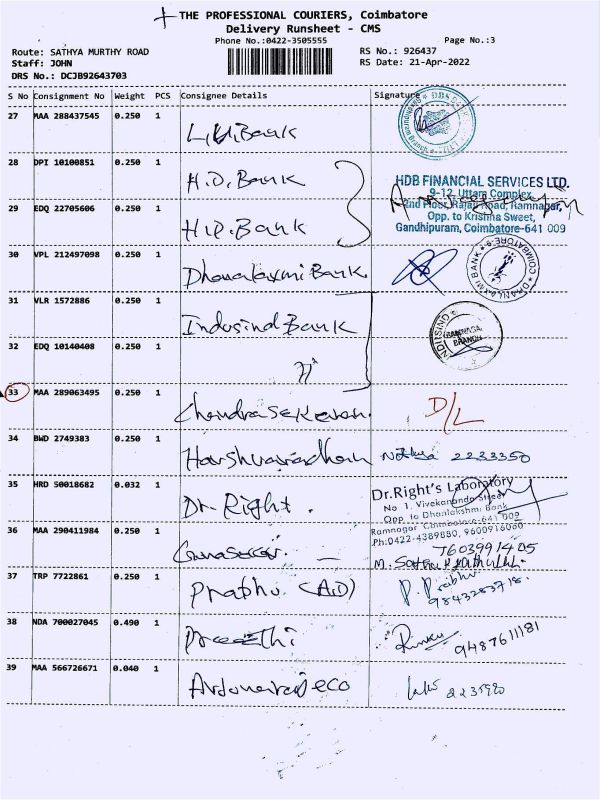 THE PROFESSIONAL COURIERS, Coimbatore
Delivery Runsheet - CMS
Phone No.:0422-3505555
Page No.:3
Route: SATHYA MURTHY ROAD
Staff: JOHN
DRS No.: DCJB92643703
RS No.: 926437
RS Date: 21-Apr-2022
S No Consignment No Weight PCS Consignee Details Signature
27 MAA 288437545 0.250 1 L.V.Bank
28 DPI 10100851 0.250 1 H.D.Bank
HDB FINANCIAL SERVICES LTD.
9-12, Uttam Complex,
2nd Floor, Rajaji Road, Ramnagar,
Opp. to Krishna Sweet,
Gandhipuram, Coimbatore-641 009
29 EDQ 22705606 0.250 1 H.D.Bank
30 VPL 212497098 0.250 1 Dhanalaxmi Bank
DHANLAXMI BANK COIMBATORE-9
31 VLR 1572886 0.250 1 Indusind Bank
RAMNAGAR
BRANCH
32 EDQ 10140408 0.250 1
33 MAA 289063495 0.250 1 Chandrasekaran. D/L
34 BWD 2749383 0.250 1 Harshvardhan Nithya 2233350
35 HRD 50018682 0.032 1 Dr. Right.
Dr.Right's Laboratory
No 1, Vivekananda Street
Opp. to Dhanlakshmi Bank
Ramnagar Coimbatore-641 009
Ph:0422-4389880, 9600916060
36 MAA 290411984 0.250 1 Gunasekar.
7603991405
37 TRP 7722861 0.250 1 Prabhu (AD) P. Prabhu
9843283718.
38 NDA 700027045 0.490 1 Preethi Rinky 9487611181
39 MAA 566726671 0.040 1